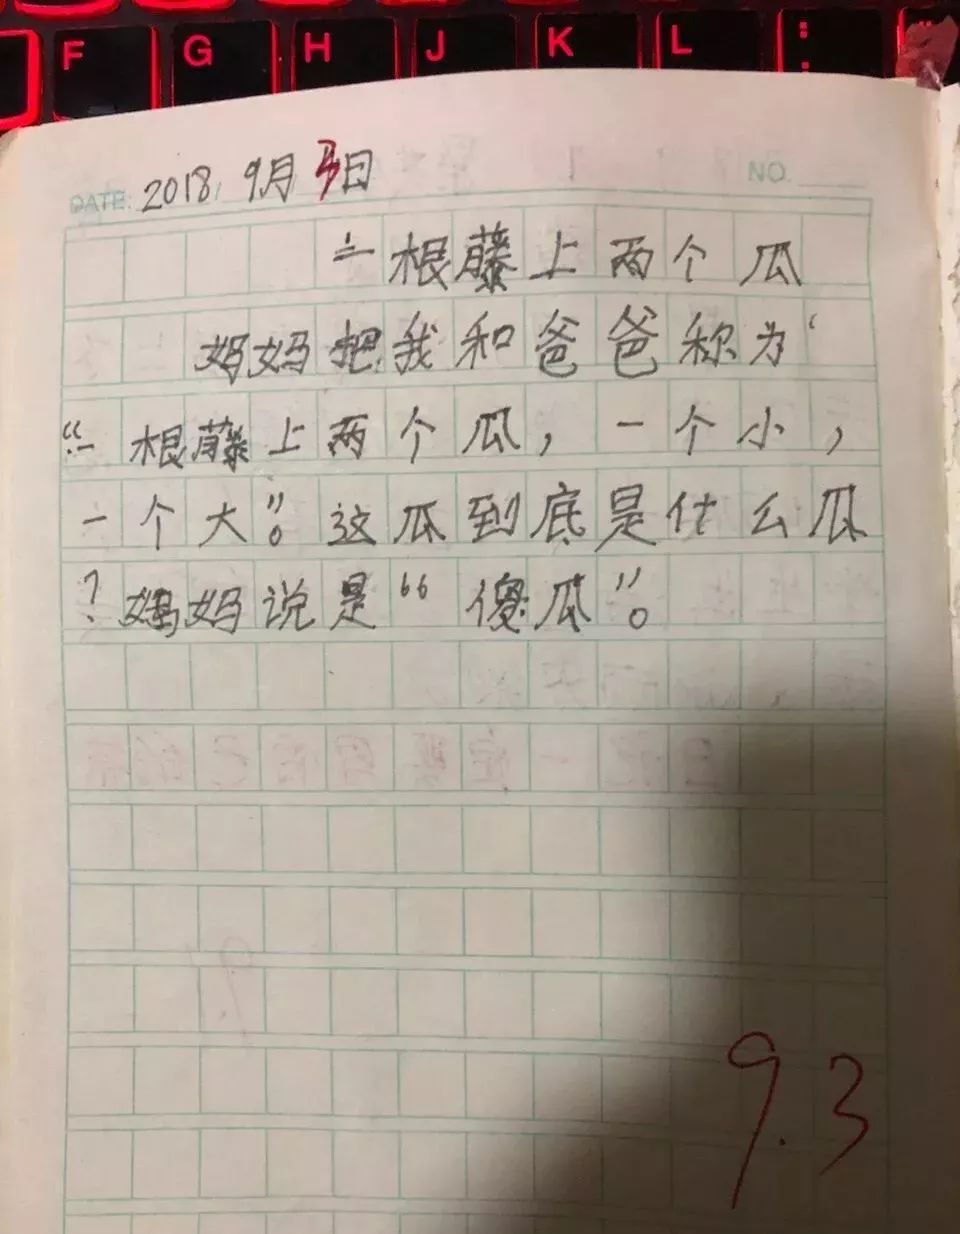 F G H J K L :
DATE: 2018 9月3日
NO.
一根藤上两个瓜
妈妈把我和爸爸称为
“一根藤上两个瓜，一个小，
一个大”。这瓜到底是什么瓜
？妈妈说是“傻瓜”。
9.3